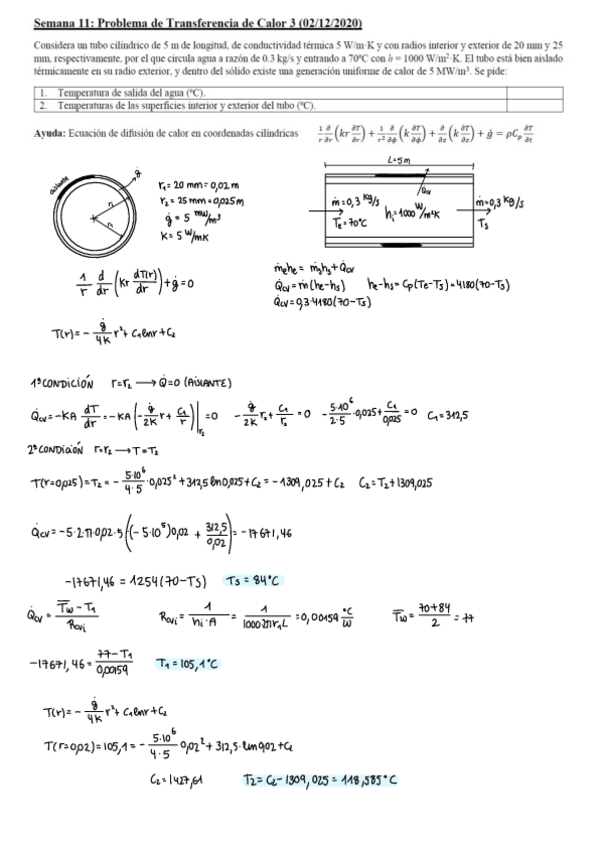 Semana 11: Problema de Transferencia de Calor 3 (02/12/2020)
Considera un tubo cilíndrico de 5 m de longitud, de conductividad térmica 5 W/m·K y con radios interior y exterior de 20 mm y 25
mm, respectivamente, por el que circula agua a razón de 0.3 kg/s y entrando a 70°C con h = 1000 W/m²·K. El tubo está bien aislado
térmicamente en su radio exterior, y dentro del sólido existe una generación uniforme de calor de 5 MW/m³. Se pide:
1. Temperatura de salida del agua (°C).
2. Temperaturas de las superficies interior y exterior del tubo (°C).
Ayuda: Ecuación de difusión de calor en coordenadas cilíndricas 1/r ∂/∂r (kr ∂T/∂r) + 1/r² ∂/∂ϕ (k ∂T/∂ϕ) + ∂/∂z (k ∂T/∂z) + ġ = ρCp ∂T/∂t
L=5m
aislante
ġ
r₁ = 20 mm = 0,02 m
r₂ = 25 mm = 0,025 m
ġ = 5 MW/m³
K = 5 W/mK
Q̇cv
ṁ = 0,3 Kg/s
Te = 70°C
hi = 1000 W/m²K
ṁ = 0,3 Kg/s
Ts
1/r d/dr (Kr dT(r)/dr) + ġ = 0
ṁehe = ṁshs + Q̇cv
Q̇cv = ṁ(he-hs) he-hs = Cp(Te-Ts) = 4180(70-Ts)
Q̇cv = 0,3·4180(70-Ts)
T(r) = - ġ/4K r² + C₁lnr + C₂
1ª CONDICIÓN r=r₂ → Q̇=0 (AISLANTE)
Q̇cv = -KA dT/dr = -KA (- ġ/2K r + C₁/r)|r₂ = 0 - ġ/2K r₂ + C₁/r₂ = 0 - 5·10⁶/2·5 ·0,025 + C₁/0,025 = 0 C₁ = 312,5
2ª CONDICIÓN r=r₂ → T=T₂
T(r=0,025) = T₂ = - 5·10⁶/4·5 ·0,025² + 312,5 ln 0,025 + C₂ = -1309,025 + C₂ C₂ = T₂ + 1309,025
Q̇cv = -5·2·π·0,02·5 ((-5·10⁵)0,02 + 312,5/0,02) = -17671,46
-17671,46 = 1254(70-Ts) Ts = 84°C
Q̇cv = T̄w - T₁/Rcvi Rcvi = 1/hi·A = 1/1000·2πr₁L = 0,00159 °C/W T̄w = 70+84/2 = 77
-17671,46 = 77-T₁/0,00159 T₁ = 105,1°C
T(r) = - ġ/4K r² + C₁lnr + C₂
T(r=0,02) = 105,1 = - 5·10⁶/4·5 0,02² + 312,5·ln 0,02 + C₂
C₂ = 1427,61 T₂ = C₂ - 1309,025 = 118,585°C